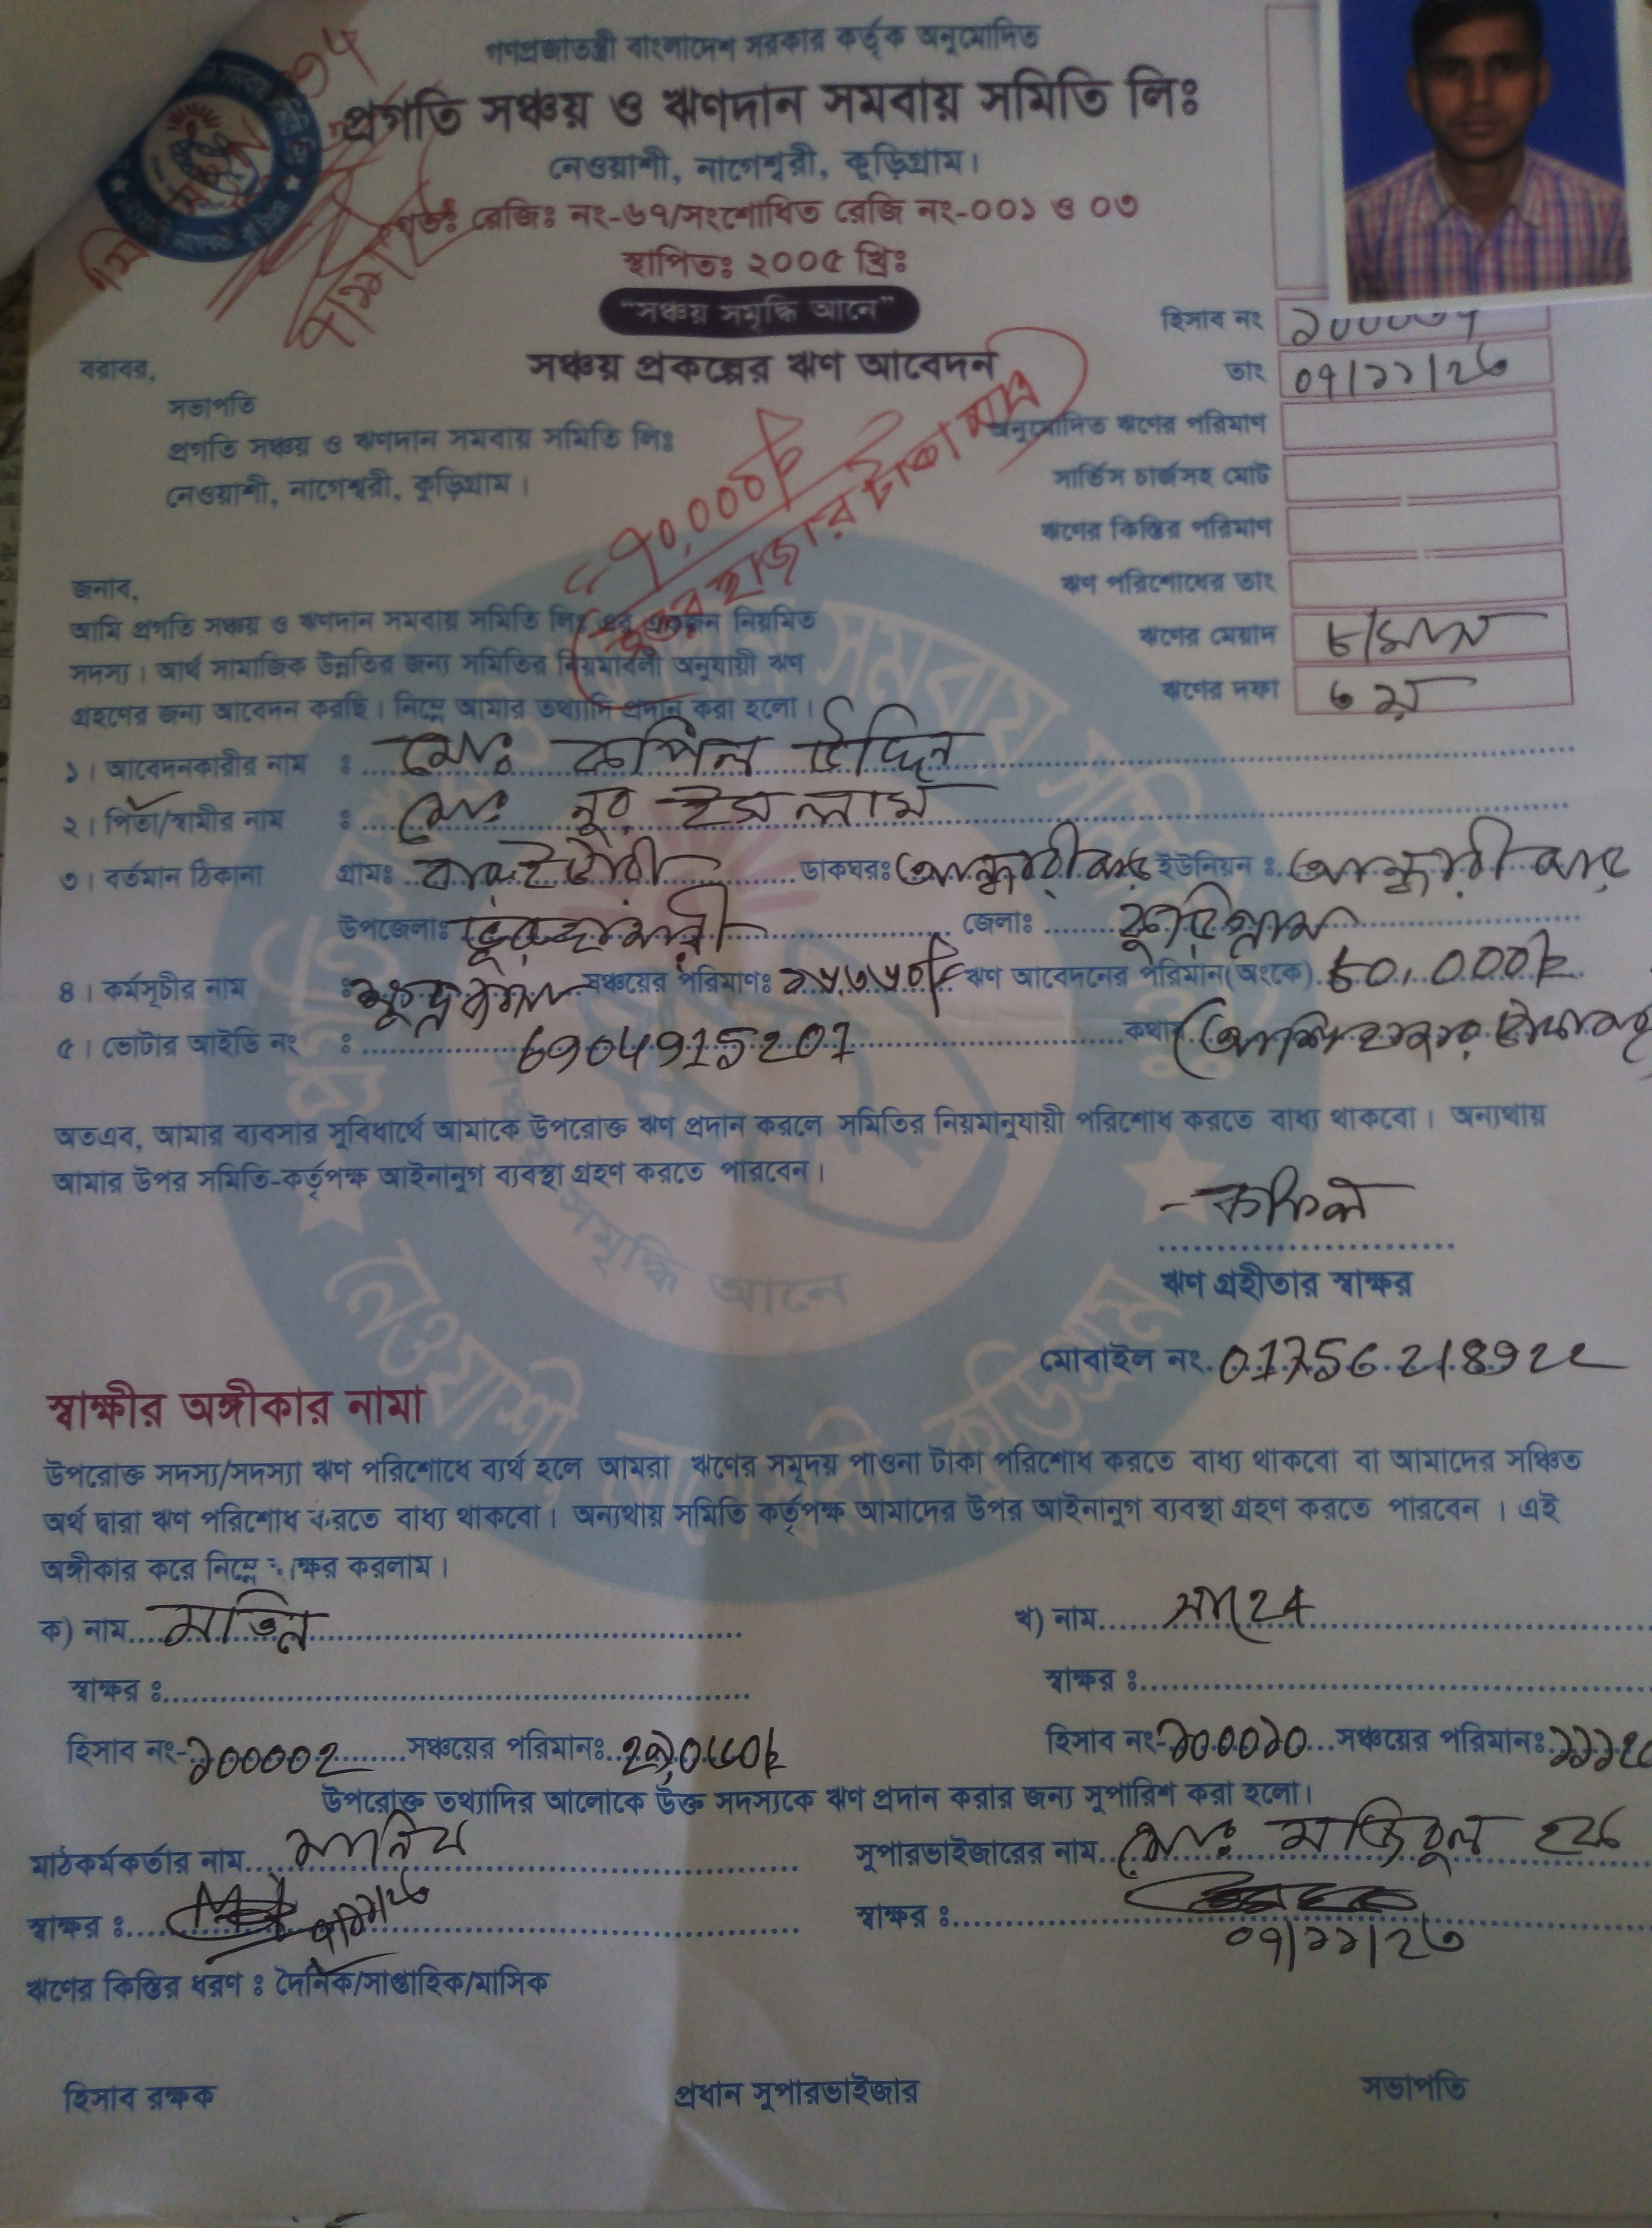 গণপ্রজাতন্ত্রী বাংলাদেশ সরকার কর্তৃক অনুমোদিত
প্রগতি সঞ্চয় ও ঋণদান সমবায় সমিতি লিঃ
নেওয়াশী, নাগেশ্বরী, কুড়িগ্রাম।
রেজিঃ নং-৬৭/সংশোধিত রেজি নং-০০১ ও ০৩
স্থাপিতঃ ২০০৫ খ্রিঃ
"সঞ্চয় সমৃদ্ধি আনে"
সঞ্চয় প্রকল্পের ঋণ আবেদন
হিসাব নং
তাং ০৭/১১/২৩
অনুমোদিত ঋণের পরিমাণ
সার্ভিস চার্জসহ মোট
ঋণের কিস্তির পরিমাণ
ঋণ পরিশোধের তাং
ঋণের মেয়াদ ৮/মাস
ঋণের দফা ৩য়
বরাবর,
সভাপতি
প্রগতি সঞ্চয় ও ঋণদান সমবায় সমিতি লিঃ
নেওয়াশী, নাগেশ্বরী, কুড়িগ্রাম।
=৭০,০০০৳
সত্তর হাজার টাকা মাত্র
জনাব,
আমি প্রগতি সঞ্চয় ও ঋণদান সমবায় সমিতি লিঃ এর একজন নিয়মিত
সদস্য। আর্থ সামাজিক উন্নতির জন্য সমিতির নিয়মাবলী অনুযায়ী ঋণ
গ্রহণের জন্য আবেদন করছি। নিম্নে আমার তথ্যাদি প্রদান করা হলো।
১। আবেদনকারীর নাম : মোঃ কপিল উদ্দিন
২। পিতা/স্বামীর নাম : মোঃ নুর ইসলাম
৩। বর্তমান ঠিকানা গ্রামঃ ডাকঘরঃ আন্ধারীঝাড় ইউনিয়ন : আন্ধারীঝাড়
উপজেলাঃ ভূরুঙ্গামারী জেলাঃ কুড়িগ্রাম
৪। কর্মসূচীর নাম : সঞ্চয়ের পরিমাণঃ ঋণ আবেদনের পরিমান(অংকে) ৮০,০০০৳
৫। ভোটার আইডি নং : 6904915201 কথায় আশি হাজার টাকা মাত্র
অতএব, আমার ব্যবসার সুবিধার্থে আমাকে উপরোক্ত ঋণ প্রদান করলে সমিতির নিয়মানুযায়ী পরিশোধ করতে বাধ্য থাকবো। অন্যথায়
আমার উপর সমিতি-কর্তৃপক্ষ আইনানুগ ব্যবস্থা গ্রহণ করতে পারবেন।
কফিল
ঋণ গ্রহীতার স্বাক্ষর
মোবাইল নং. 01756218922
স্বাক্ষীর অঙ্গীকার নামা
উপরোক্ত সদস্য/সদস্যা ঋণ পরিশোধে ব্যর্থ হলে আমরা ঋণের সমূদয় পাওনা টাকা পরিশোধ করতে বাধ্য থাকবো বা আমাদের সঞ্চিত
অর্থ দ্বারা ঋণ পরিশোধ করতে বাধ্য থাকবো। অন্যথায় সমিতি কর্তৃপক্ষ আমাদের উপর আইনানুগ ব্যবস্থা গ্রহণ করতে পারবেন । এই
অঙ্গীকার করে নিম্নে স্বাক্ষর করলাম।
ক) নাম মতিন খ) নাম
স্বাক্ষর : স্বাক্ষর :
হিসাব নং-১০০০০২ সঞ্চয়ের পরিমানঃ হিসাব নং-১০০০১০ সঞ্চয়ের পরিমানঃ
উপরোক্ত তথ্যাদির আলোকে উক্ত সদস্যকে ঋণ প্রদান করার জন্য সুপারিশ করা হলো।
মাঠকর্মকর্তার নাম সুপারভাইজারের নাম মোঃ মজিবুল হক
স্বাক্ষর : স্বাক্ষর :
০৭/১১/২৩
ঋণের কিস্তির ধরণ : দৈনিক/সাপ্তাহিক/মাসিক
হিসাব রক্ষক প্রধান সুপারভাইজার সভাপতি